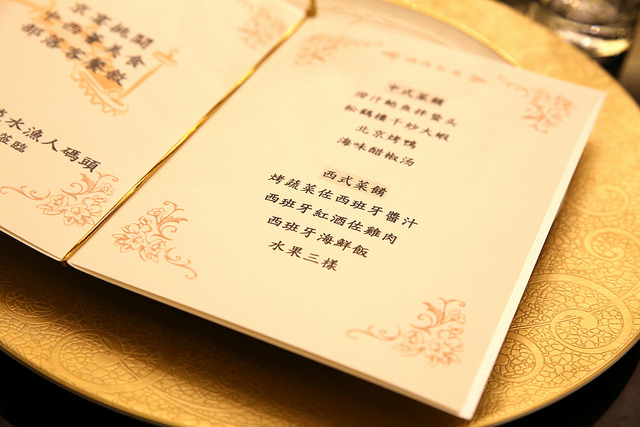 京宴桃閣
中西菁美食
部落客餐敘
水漁人碼頭
蒞臨
中式菜餚
滑汁鮑魚拌蟹头
松鶴樓干炒大蝦
北京烤鴨
海味醋椒汤
西式菜餚
烤蔬菜佐西班牙醬汁
西班牙紅酒佐雞肉
西班牙海鮮飯
水果三樣